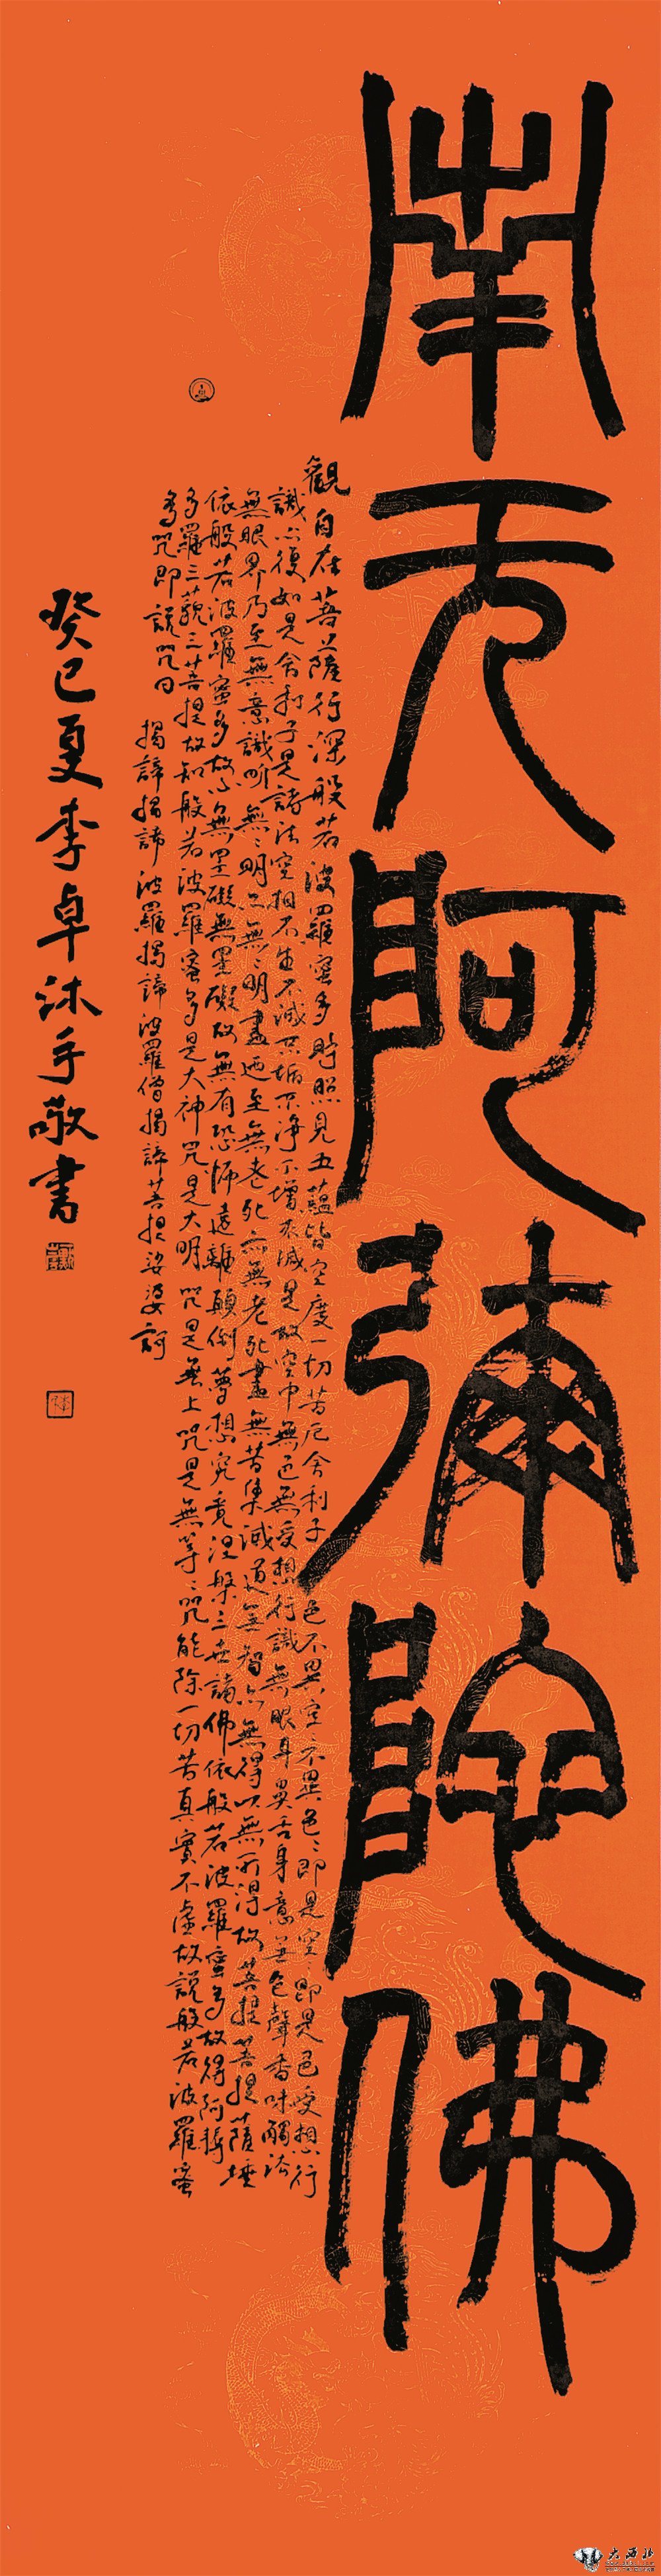 南无阿彌陀佛
觀自在菩薩行深般若波羅蜜多時照見五蘊皆空度一切苦厄舍利子色不異空空不異色色即是空空即是色受想行
識亦復如是舍利子是諸法空相不生不滅不垢不淨不增不減是故空中無色無受想行識無眼耳鼻舌身意無色聲香味觸法
無眼界乃至無意識界無無明亦無無明盡乃至無老死亦無老死盡無苦集滅道無智亦無得以無所得故菩提薩埵
依般若波羅蜜多故心無罣礙無罣礙故無有恐怖遠離顛倒夢想究竟涅槃三世諸佛依般若波羅蜜多故得阿耨
多羅三藐三菩提故知般若波羅蜜多是大神咒是大明咒是無上咒是無等等咒能除一切苦真實不虛故說般若波羅蜜
多咒即說咒曰 揭諦揭諦波羅揭諦波羅僧揭諦菩提娑婆訶
癸巳夏李卓沐手敬書
大西北